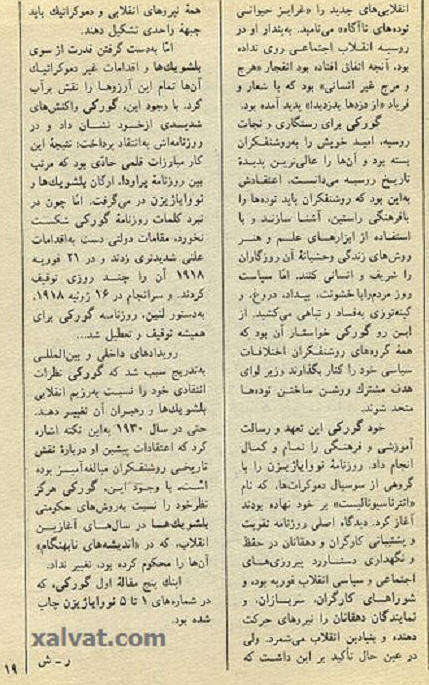 انقلابی‌های جدید را «غرایز حیوانی
توده‌های ناآگاه» می‌نامید. به‌پندار او در
روسیه انقلاب اجتماعی روی نداده
بود، آنچه اتفاق افتاده بود انفجار «هرج
و مرج غیر انسانی» بود که با شعار و
فریاد «از دزدها بدزدید!» پدید آمده بود.
گورکی برای رستگاری و نجات
روسیه، امید خویش را به‌روشنفکران
بسته بود و آن‌ها را عالی‌ترین پدیدهٔ
تاریخ روسیه می‌دانست. اعتقادش
به‌این بود که روشنفکران باید توده‌ها را
بافرهنگی راستین، آشنا سازند و با
استفاده از ابزارهای علم و هنر
روش‌های زندگی وحشیانهٔ آن روزگاران
را شریف و انسانی کنند. امّا سیاست
روز مردم را با خشونت، بیداد، دروغ، و
کینه‌توزی به‌فساد و تباهی می‌کشید. از
این رو گورکی خواستار آن بود که
همهٔ گروه‌های روشنفکران اختلافات
سیاسی خود را کنار بگذارند و زیر لوای
هدف مشترك روشن ساختن توده‌ها
متحد شوند.
خود گورکی این تعهد و رسالت
آموزشی و فرهنگی را تمام و کمال
انجام داد. روزنامهٔ نووایاژیزن را با
گروهی از سوسیال دموکرات‌ها، که نام
«انترناسیونالیست» بر خود نهاده بودند
آغاز کرد. دیدگاه اصلی روزنامه تقویت
و پشتیبانی کارگران و دهقانان در حفظ
و نگهداری دستاورد پیروزی‌های
اجتماعی و سیاسی انقلاب فوریه بود، و
شوراهای کارگران، سربازان، و
نمایندگان دهقانان را نیروهای حرکت
دهنده و بنیادین انقلاب می‌شمرد. ولی
در عین حال تأکید بر این داشت که
همهٔ نیروهای انقلابی و دموکراتیك باید
جبههٔ واحدی تشکیل دهند.
امّا به‌دست گرفتن قدرت از سوی
بلشویك‌ها و اقدامات غیر دموکراتیك
آن‌ها تمام این آرزوها را نقش برآب
کرد. با وجود این، گورکی واکنش‌های
شدیدی ازخود نشان داد و در
روزنامه‌اش به‌انتقاد پرداخت؛ نتیجهٔ این
کار مبارزات قلمی حادّی بود که مرتب
بین روزنامهٔ پراودا، ارگان بلشویك‌ها و
نووایاژیزن در می‌گرفت. امّا چون در
نبرد کلمات روزنامهٔ گورکی شکست
نخورد، مقامات دولتی دست به‌اقدامات
علنی شدیدتری زدند و در ۲۱ فوریه
۱۹۱۸ آن را چند روزی توقیف
کردند. و سرانجام در ۱۶ ژوئیه ۱۹۱۸،
به‌دستور لنین، روزنامه گورکی برای
همیشه توقیف و تعطیل شد...
رویدادهای داخلی و بین‌المللی
به‌تدریج سبب شد که گورکی نظرات
انتقادی خود را نسبت به‌رژیم انقلابی
بلشویك‌ها و رهبران آن تغییر دهد.
حتی در سال ۱۹۳۰ به‌این نکته اشاره
کرد که اعتقادات پیشین او دربارهٔ نقش
تاریخی روشنفکران مبالغه‌آمیز بوده
است. با وجود این، گورکی هرگز
نظرخود را نسبت به‌روش‌های حکومتی
بلشویك‌ها در سال‌های آغازین
انقلاب، که در «اندیشه‌های نابهنگام»
آن‌ها را محکوم کرده بود، تغییر نداد.
اینك پنج مقالهٔ اول گورکی، که
در شماره‌های ۱ تا ۵ نووایاژیزن چاپ
شده بود.
ر – ش
xalvat.com
۱۹